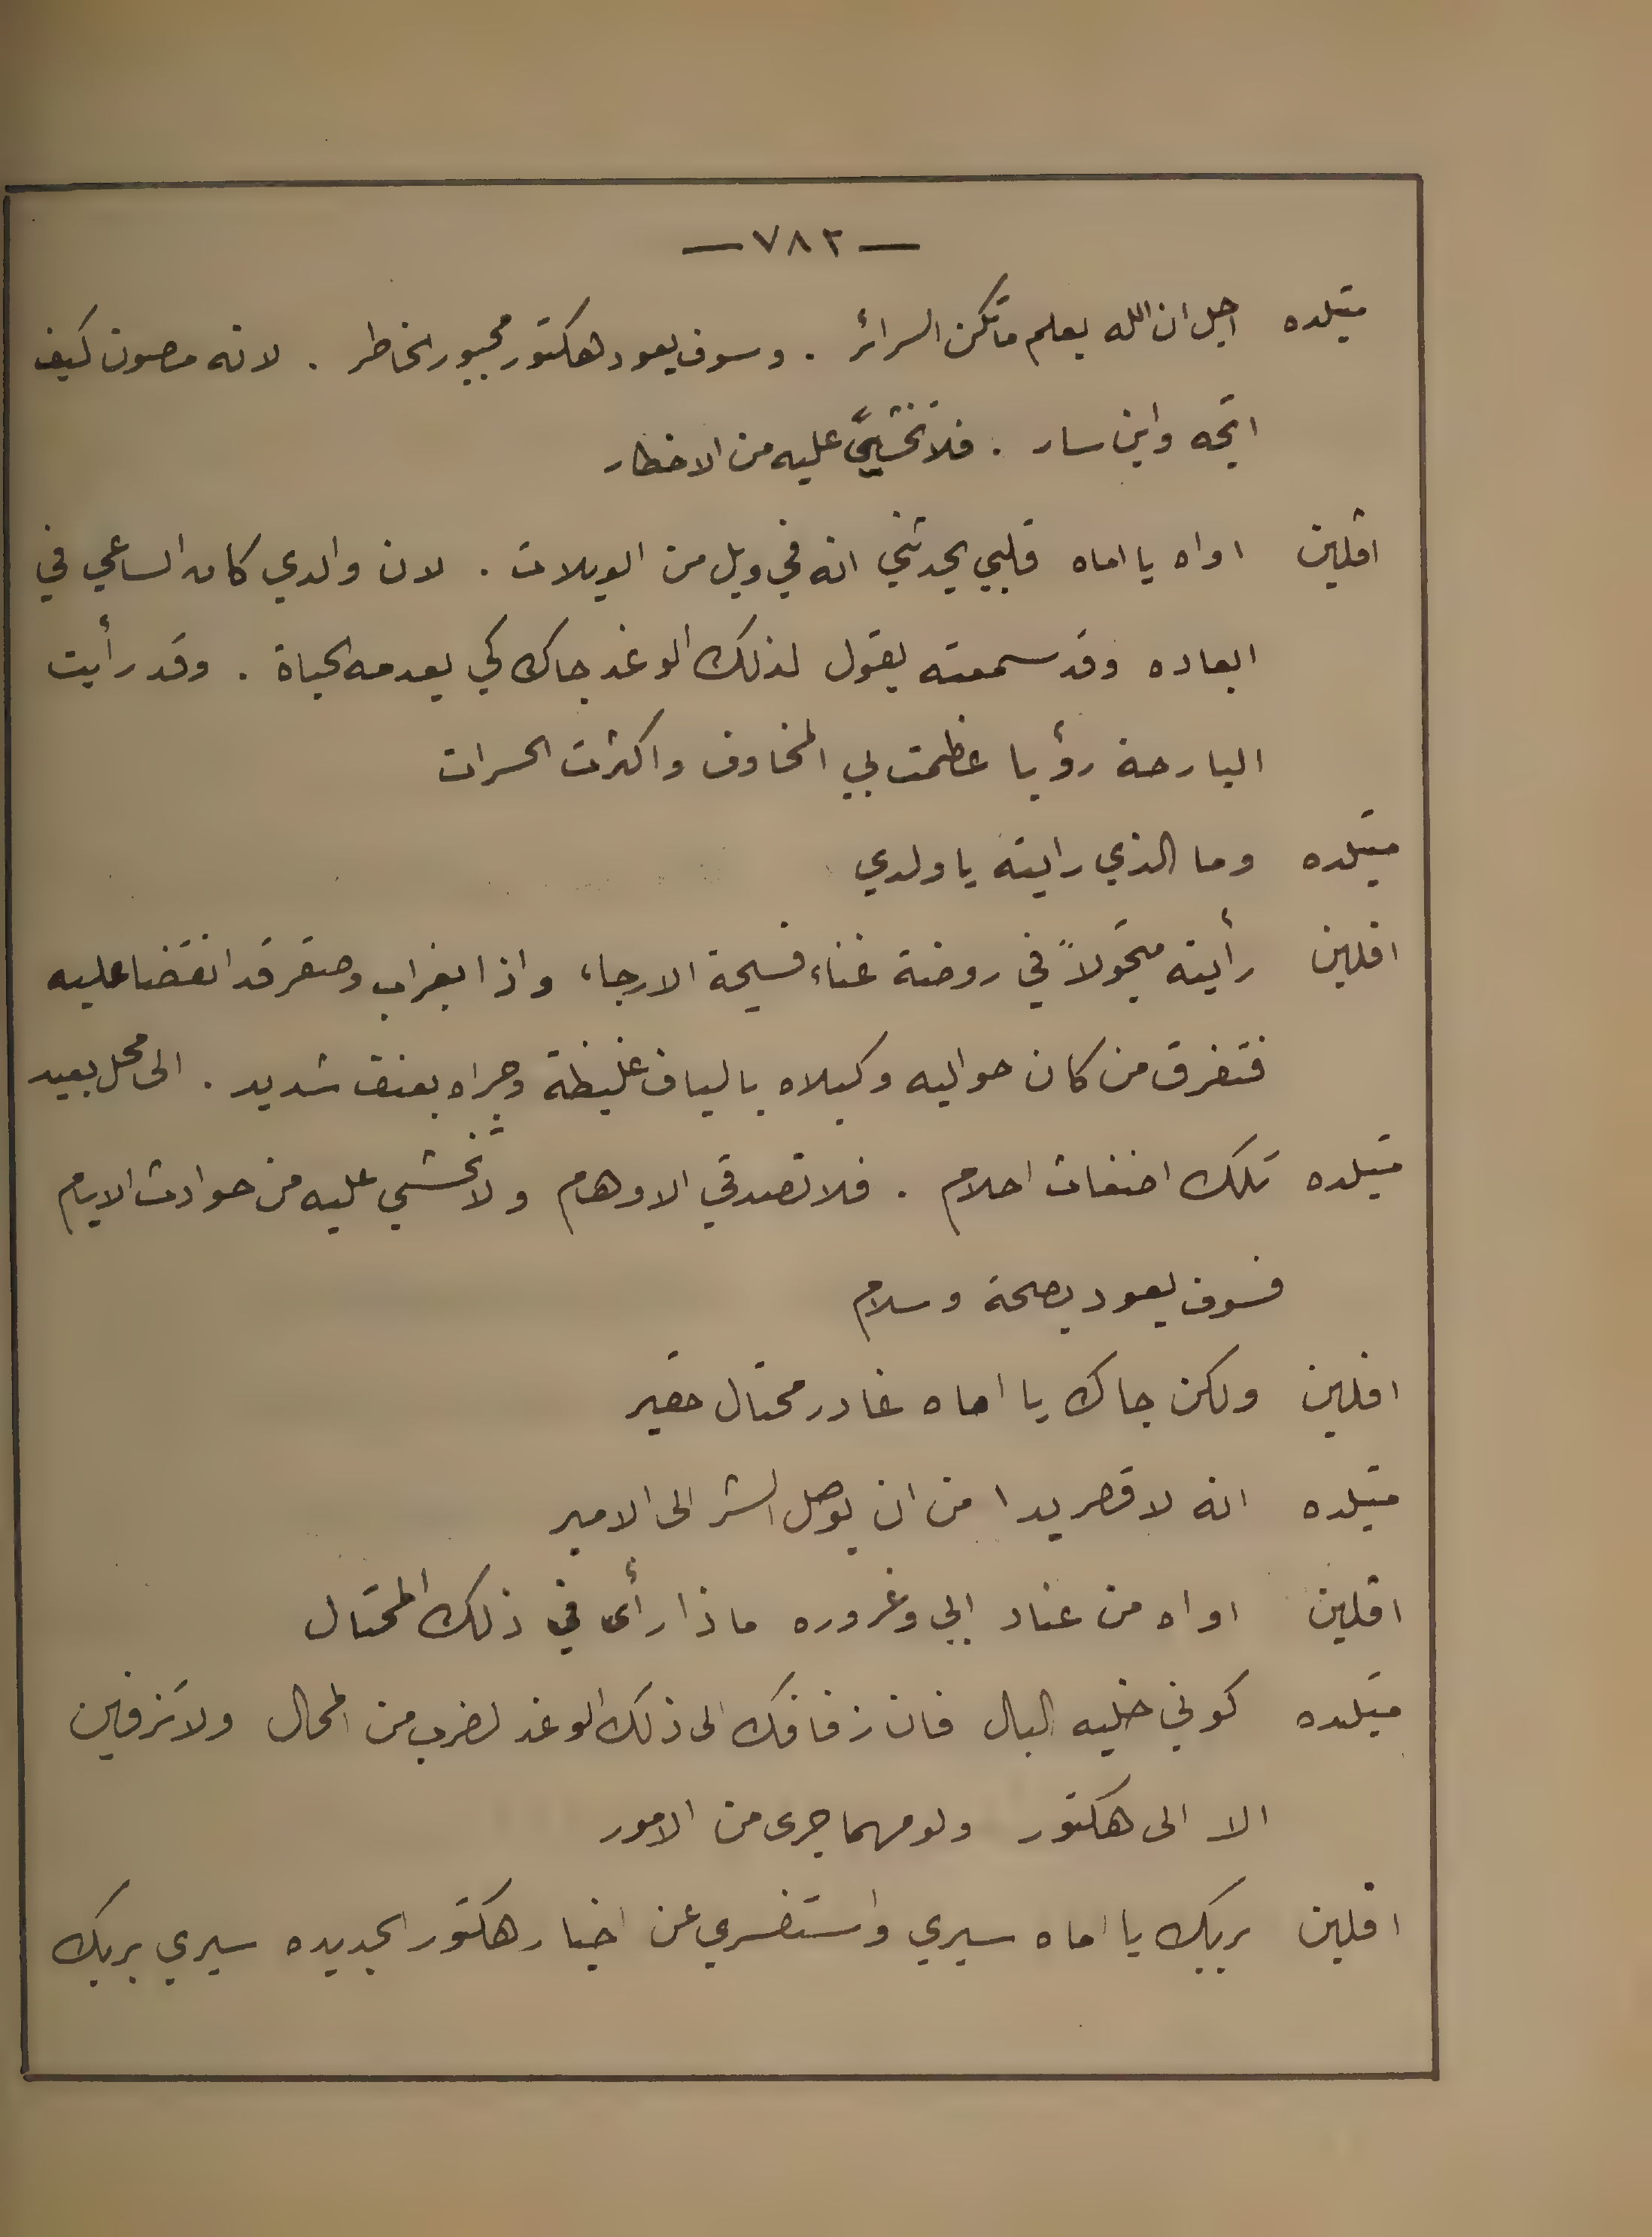 — ٧٨٢ —
متيلده اجل ان الله يعلم ما تكن السرائر . وسوف يعود هكتور مجبور الخاطر . لانه مصون كيف
اتجه واين سار . فلا تخشيَّ عليه من الاخطار
افلين اواه يا اماه قلبي يحدثني انه في ويل من الويلات . لان والدي كان الساعي في
ابعاده وقد سمعته يقول لذلك الوغد جاك كي يعدمه الحياة . وقد رأيت
البارحة رؤيا عظمت بي المخاوف واكثرت الحسرات
متيلده وما الذي رايته يا ولدي
افلين رأيته متجولاً في روضة غناء فسيحة الارجاء واذا بغراب وصقر قد انقضا عليه
فتفرق من كان حواليه وكبلاه بالياف غليظة وجراه بعنف شديد . الى محل بعيد
متيلده تلك اضغاث احلام . فلا تصدقي الاوهام ولا تخشي عليه من حوادث الايام
فسوف يعود بصحة وسلام
افلين ولكن جاك يا اماه غادر محتال حقير
متيلده انه لاقصر يدا من ان يوصل الشر الى الامير
افلين اواه من عناد ابي وغروره ماذا رأى في ذلك المحتال
متيلده كوني خليه البال فان زفافك الى ذلك الوغد لضرب من المحال ولا تزفين
الا الى هكتور ولو مهما جرى من الامور
افلين بربك يا اماه سيري واستفسري عن اخبار هكتور الجديده سيري بربك